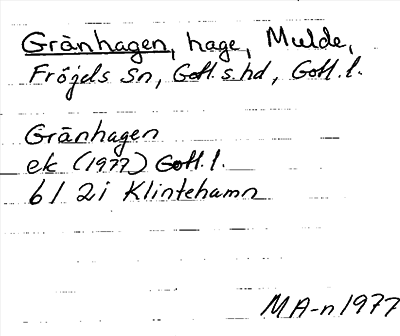 Gränhagen, hage, Mulde,
Fröjels sn, Gotl. s. hd, Gotl. l.
Gränhagen
ek (1977) Gotl. l.
6I 2i Klintehamn
MA-n 1977